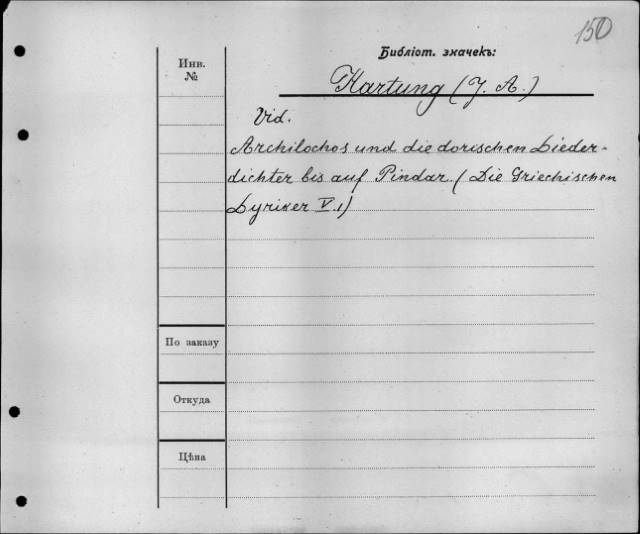 150
Библіот. значекъ:
Инв.
№
Hartung (J. A.)
Vid.
Archilochos und die dorischen Lieder-
dichter bis auf Pindar. (Die Griechischen
Lyriker V.1)
По заказу
Откуда
Цѣна